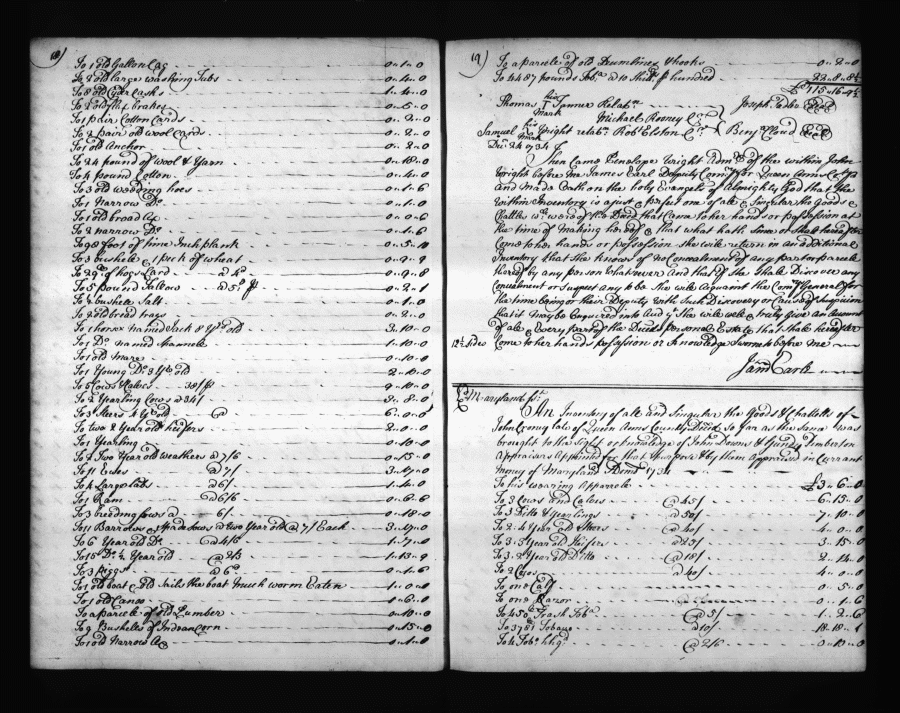 8)
To 1 old Gallon Cag 0..1..0
To 2 old large washing Tubs 0..4..0
To 8 old Cyder Casks 1..4..0
To 2 old flax brakes 0..5..0
To 1 pair Cotton Cards 0..2..0
To 2 pair old wool Cards 0..2..0
To 1 old Anchor 0..2..0
To 24 pound of wool & Yarn 0..18..0
To 4 pound Cotton 0..4..0
To 3 old weeding hoes 0..1..6
To 1 Narrow Do. 0..1..0
To 1 old broad Ax 0..0..6
To 2 narrow Do. 0..1..6
To 98 foot of time Inch plank 0..5..10
To 3 bushels 1 peck of wheat 0..9..9
To 29 lb of hogs Lard @ 4d 0..9..8
To 5 pound Tallow @ 5d p 0..2..1
To 2 bushels Salt 0..1..0
To 2 old bread trays 0..2..0
To 1 horse named Jack 8 Yrs old 3..10..0
To 1 Do. named 1..10..0
To 1 old mare 0..10..0
To 1 Young Do. 3 Yrs old 2..10..0
To 6 Cows & Calves 9..10..0
To 2 Yearling Cows @ 34/ 3..8..0
To 3 Steers 4 Yr old @ 6..0..0
To two 2 Year old heifers 2..0..0
To 1 Yearling 0..10..0
To 2 Two Year old weathers @ 7/6 0..15..0
To 11 Ewes @ 7/ 3..17..0
To 4 Large lambs @ 6/ 1..4..0
To 1 Ram @ 6/6 0..6..6
To 3 breeding sows @ 6/ 0..18..0
To 11 Barrows & Spade sows @ two Year old @ 7/ Each 3..17..0
To 6 Year old Do. @ 4/6 1..7..0
To 15 Do. ½ Year old @ 2/3 1..13..9
To 3 Piggs @ 6d 0..1..6
To 1 old boat & old Sails the boat much worm Eaten 1..0..0
To 1 old Canoe 1..6..0
To a parcele of old Lumber 0..10..0
To 9 Bushells of Indian Corn 0..15..0
To 1 old Narrow Ax 0..1..0
(9)
To a parcele of old & hooks 0..2..0
To 4487 pounds Toba. @ 10 Shills. p hundred 22..8..8½
£115..16..4½
Thomas his T mark Turner Relatn.
Michael Rooney Cr.
Joseph Edbe
Samuel his mark Wright relatn. Robt Elston Cr. Benj. Cloud
Decr. 24 1734
Then Came Penelope Wright Admx. of the within John
Wright before me James Earl Deputy Comry. for Queen Anns County
and made Oath on the holy Evangels of Almighty God that the
within Inventory is a just & perfect one of all & Singular the Goods &
Chattles wch. were of the Deced that Came to her hands or possession at
the time of making hereof & that what hath Since or shall hereafter
Come to her hands or possession she will return in an additional
Inventory that She knows of no Concealment of any part or parcele
thereof by any person whatsoever and that if She Shall Discover any
Concealment or Suspect any to be She will Acquaint the Comry. General for
the time being or their Deputy with Such Discovery or Cause of Suspicion
that it may be Enquired into And yt She will well & truly Give an Account
of all & Every part of the Deceds personal Estate that Shall hereafter
12½ Sides Come to her hands possession or Knowledge Sworn to before me
Jams Earle
Maryland Ss.
An Inventory of all and Singular the Goods & Chattells of
John late of Queen Anns County Deced. so far as the Same was
brought to the Sight or knowledge of John Downs & Grundy Pemberton
Appraisers Appointed for that Purpose & by them Appraised in Currant
Money of Maryland Anno Dom. 1734
To his wearing Apparrele £3..6..0
To 3 Cows and Calves @ 45/ 6..15..0
To 3 Ditto & Yearlings @ 50/ 7..10..0
To 2..4 Year old Steers @ 40/ 4..0..0
To 3..3 Year old Heifers @ 25/ 3..15..0
To 3..2 Year old Ditto @ 18/ 2..14..0
To 2 Cows @ 40/ 4..0..0
To one Calf 0..5..0
To one Razor 0..1..6
To 450 lb Trash Toba. @ 5/ 1..2..6
To 3781 Tobaco @ 10/ 18..18..1
To 4 Tobo. hhgs @ 2/6 0..10..0